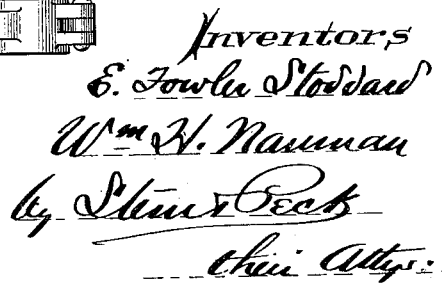 Inventors
E. Fowler Stoddard
Wm H. Nauman
by Stem & Peck
their Attys.